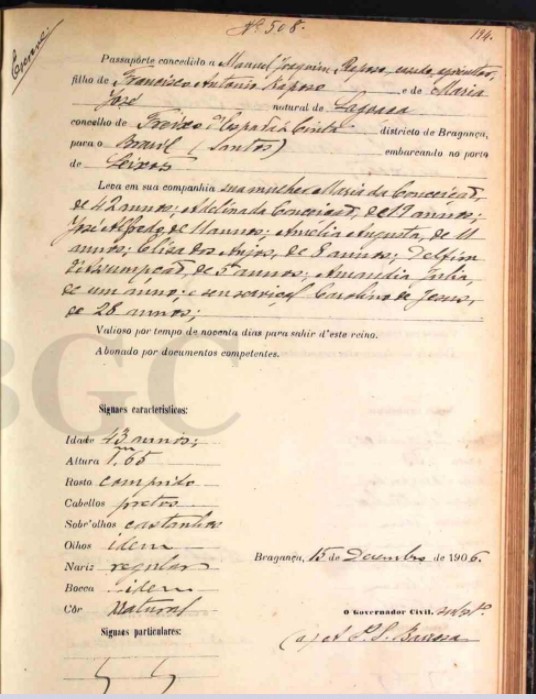 Nº 508.
194.
Passaporte concedido a Manuel Joaquim Raposo,
filho de Francisco Antonio Raposo e de Maria
José natural de Lagoaça
concelho de Freixo d'Espada á Cinta districto de Bragança,
para o Brasil (Santos) embarcando no porto
de Leixões
Leva em sua companhia sua mulher Maria da Conceição,
de 42 annos; Adelina da Conceição, de 19 annos;
José Alfredo, de 11 annos; Amélia Augusta, de 11
annos; Elisa dos Anjos, de 8 annos; Delfim
d'Assumpção, de 5 annos; Amandia Julia,
de um anno; e seu serviçal Carolino de Jesus,
de 28 annos;
Valioso por tempo de noventa dias para sahir d'este reino.
Abonado por documentos competentes.
BGC
Signaes caracteristicos:
Idade 43 annos;
Altura 1,m65
Rosto comprido
Cabellos pretos
Sobr'olhos castanhos
Olhos idem
Nariz regular
Bocca idem
Côr Natural
Bragança, 15 de Dezembro de 1906.
O Governador Civil,
Signaes particulares: